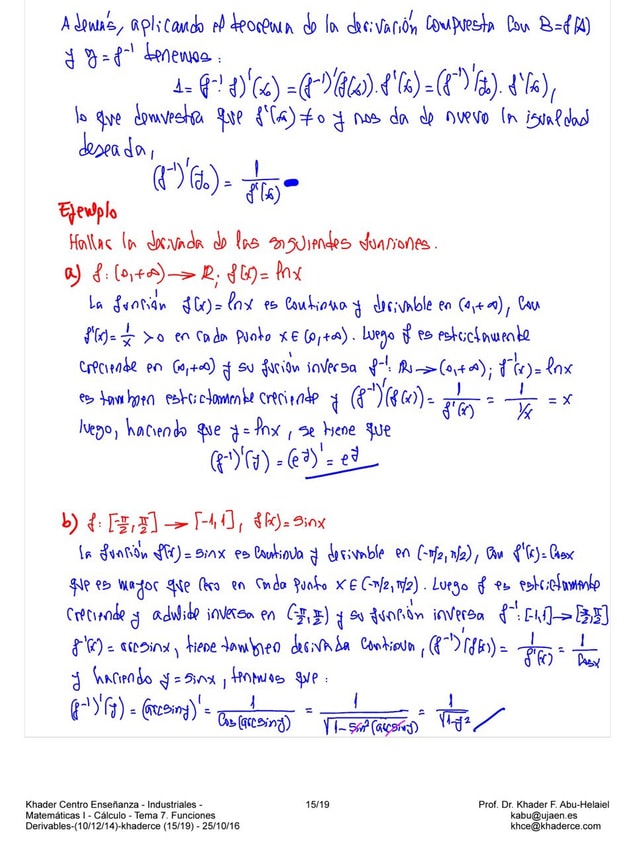 Además, aplicando el teorema de la derivación compuesta con B=f(A)
y g = f⁻¹ tenemos:
1 = (f⁻¹ f)'(x₀) = (f⁻¹)'(f(x₀)). f'(x₀) = (f⁻¹)'(y₀). f'(x₀),
lo que demuestra que f'(x₀) ≠ 0 y nos da de nuevo la igualdad
deseada,
(f⁻¹)'(y₀) = 1/f'(x₀)
Ejemplo
Hallar la derivada de las siguientes funciones.
a) f: (0,+∞) → ℝ; f(x) = lnx
La función f(x) = lnx es continua y derivable en (0,+∞), con
f'(x) = 1/x > 0 en cada punto x∈(0,+∞). Luego f es estrictamente
creciente en (0,+∞) y su función inversa f⁻¹: ℝ → (0,+∞); f⁻¹(x) = lnx
es tambien estrictamente creciente y (f⁻¹)'(f(x)) = 1/f'(x) = 1/1/x = x
luego, haciendo que y = lnx, se tiene que
(f⁻¹)'(y) = (e^y)' = e^y
b) f: [-π/2, π/2] → [-1,1], f(x) = sinx
La función f(x) = sinx es continua y derivable en (-π/2, π/2), con f'(x) = cosx
que es mayor que cero en cada punto x∈(-π/2, π/2). Luego f es estrictamente
creciende y admite inversa en (-π/2, π/2) y su función inversa f⁻¹: [-1,1] → [-π/2, π/2]
f⁻¹(x) = arcsinx, tiene tambien derivada continua, (f⁻¹)'(f(x)) = 1/f'(x) = 1/cosx
y haciendo y = sinx, tenemos que:
(f⁻¹)'(y) = (arcsiny)' = 1/cos(arcsiny) = 1/√1-sin²(arcsiny) = 1/√1-y²
Khader Centro Enseñanza - Industriales - 15/19 Prof. Dr. Khader F. Abu-Helaiel
Matemáticas I - Cálculo - Tema 7. Funciones kabu@ujaen.es
Derivables-(10/12/14)-khaderce (15/19) - 25/10/16 khce@khaderce.com